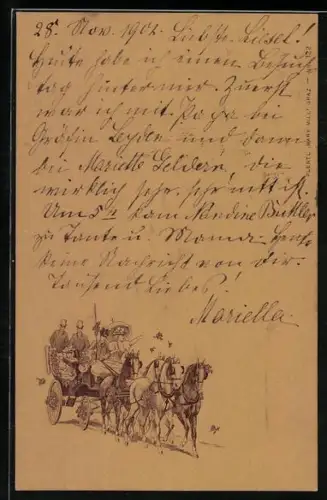 28. Nov. 1902. Liebste Liesel!
Heute habe ich einen Besuch-
tag hinter mir. Zuerst
war ich mit Papa bei
Gräfin Leyden und dann
bei Mariette Geldern, die
wirklich sehr, sehr nett ist.
Um 5 kam Nandine Buttler
zu Tante u. Mama. Heute
keine Nachricht von dir.
Tausend Liebes!
Mariella.